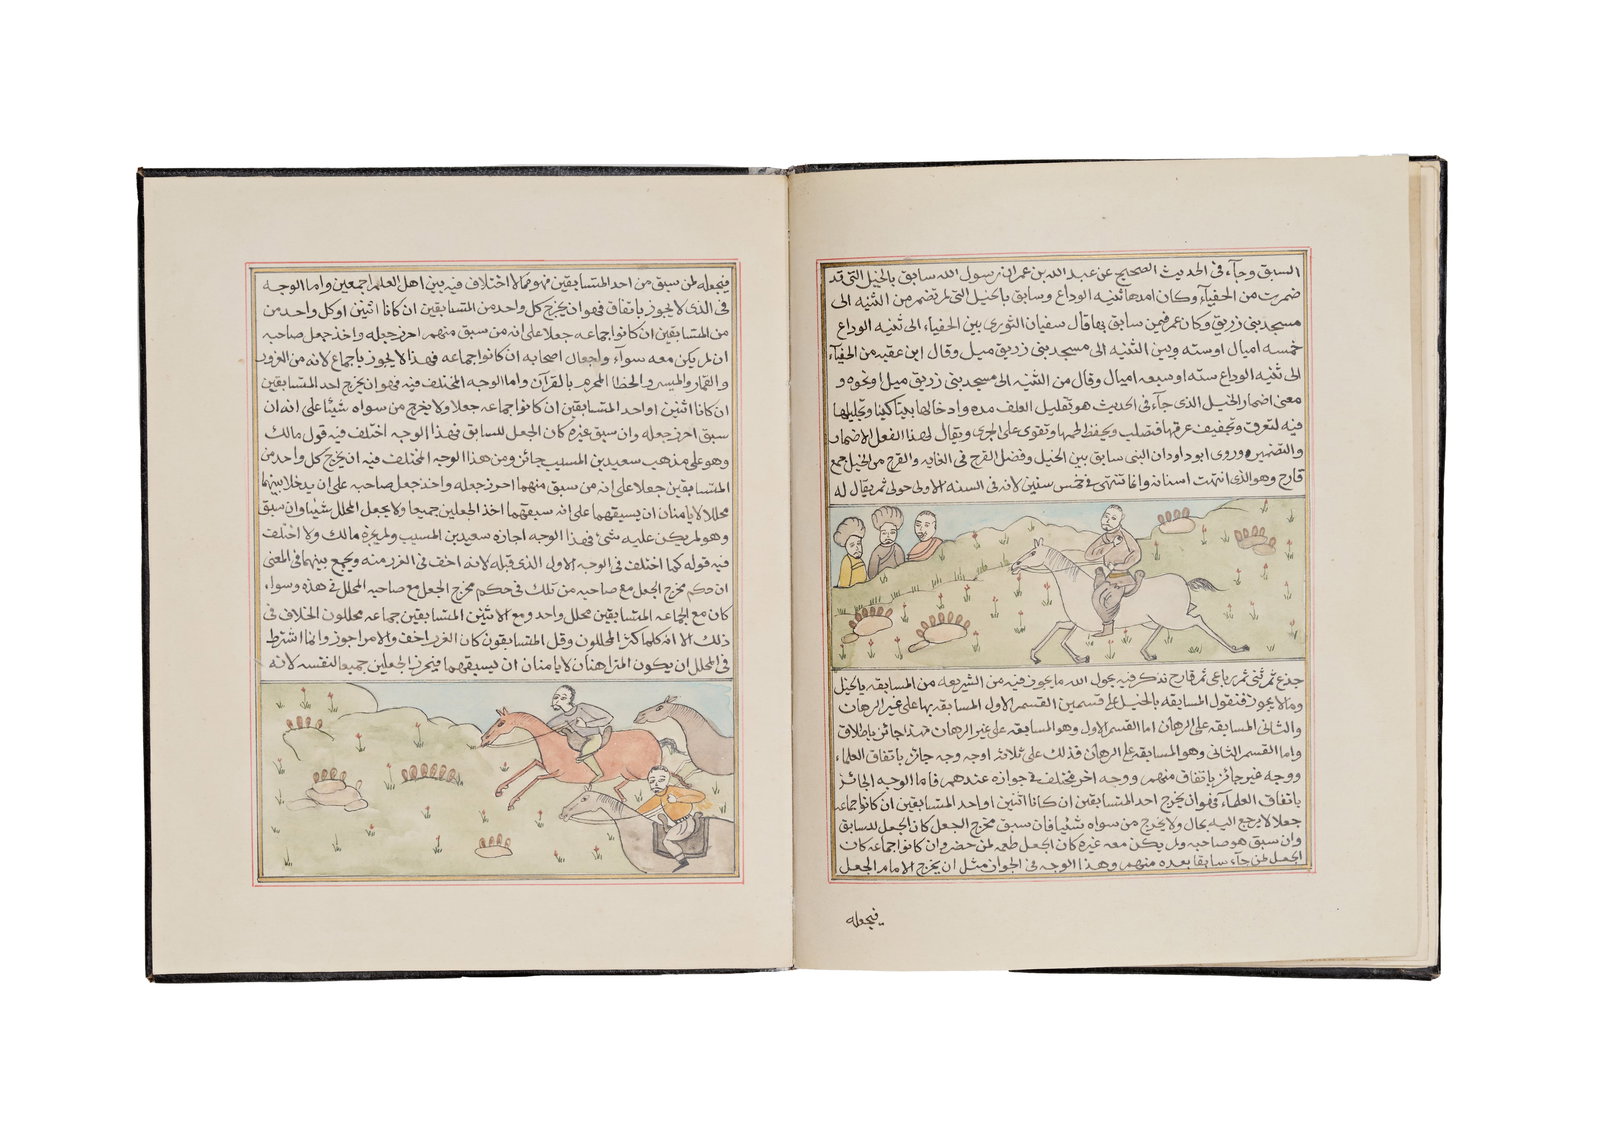 السبق وجآء فى الحديث الصحيح عن عبد الله بن عمر ان رسول الله سابق بالخيل التى قد
ضمرت من الحفيآء وكان امدها ثنيه الوداع وسابق بالخيل التى لم تضمر من الثنيه الى
مسجد بنى زريق وكان عمر فيمن سابق بها قال سفيان الثورى بين الحفياء الى ثنيه الوداع
خمسه اميال او سته وبين الثنيه الى مسجد بنى زريق ميل وقال ابن عقبه من الحفيآء
الى ثنيه الوداع سته او سبعه اميال وقال من الثنيه الى مسجد بنى زريق ميل او نحوه و
معنى اضمار الخيل الذى جآء فى الحديث هو تقليل العلف مده وادخالها بيتا كنينا وتجليلها
فيه لتعرق وتجفيف عرقها فتصلب ويخفف لحمها وتقوى على الجرى ويقال لهذا الفعل الاضمار
والتضمير وروى ابو داود ان النبى سابق بين الخيل وفضل القرح فى الغايه والقرح من الخيل جمع
قارح وهو الذى انتهت اسنانه وانما تنتهى فى خمس سنين لانه فى السنه الاولى حولى ثم يقال له
جذع ثم ثنى ثم رباعى ثم قارح نذكر فيه بحول الله ما يجوز فيه من الشريعه من المسابقه بالخيل
وما لا يجوز فنقول المسابقه بالخيل على قسمين القسم الاول المسابقه بها على غير الرهان
والثانى المسابقه على الرهان اما القسم الاول وهو المسابقه على غير الرهان فهذا جائز باطلاق
واما القسم الثانى وهو المسابقه على الرهان فذلك على ثلاثه اوجه وجه جائز باتفاق العلماء
ووجه غير جائز باتفاق منهم ووجه اخر مختلف فى جوازه عندهم فاما الوجه الجائز
باتفاق العلمآء فهو ان يخرج احد المتسابقين ان كانا اثنين او احد المتسابقين ان كانوا جماعه
جعلا لا يرجع اليه بحال ولا يخرج من سواه شئيا فان سبق مخرج الجعل كان الجعل للسابق
وان سبق هو صاحبه ولم يكن معه غيره كان الجعل طعمه لمن حضر وان كانوا جماعه كان
الجعل لمن جآء سابقا بعده منهم وهذا الوجه فى الجواز مثل ان يخرج الامام الجعل
فيجعله
فيجعله لمن سبق من احد المتسابقين فهو مما لا اختلاف فيه بين اهل العلم اجمعين واما الوجه
فى الذى لا يجوز باتفاق فهو ان يخرج كل واحد من المتسابقين ان كانا اثنين او كل واحد من
من المتسابقين ان كانوا جماعه جعلا على انه من سبق منهم احرز جعله واخذ جعل صاحبه
ان لم يكن معه سوآء واجعال اصحابه ان كانوا جماعه فهذا لا يجوز باجماع لانه من الغرور
والقمار والميسر والخطا المحرم بالقرآن واما الوجه المختلف فيه فهو ان يخرج احد المتسابقين
ان كانا اثنين او احد المتسابقين ان كانوا جماعه جعلا ولا يخرج من سواه شيئا على انه ان
سبق احرز جعله وان سبق غيره كان الجعل للسابق فهذا الوجه اختلف فيه قول مالك
وهو على مذهب سعيد بن المسيب جائز ومن هذا الوجه المختلف فيه ان يخرج كل واحد من
المتسابقين جعلا على انه من سبق منهما احرز جعله واخذ جعل صاحبه على ان يدخلا بينهما
محللا لا يامنان ان يسبقهما على انه سبقهما اخذ الجعلين جميعا ولا يجعل المحلل شئيا وان سبق
وهو لم يكن عليه شئ فهذا الوجه اجازه سعيد بن المسيب ولم يجزه مالك ولا اختلف
فيه قوله كما اختلف فى الوجه الاول الذى قبله لانه اخف فى الغرر منه ويجمع بينهما فى المعنى
ان حكم مخرج الجعل مع صاحبه من تلك فى حكم مخرج الجعل مع صاحبه المحلل فى هذه وسواء
كان مع الجماعه المتسابقين محلل واحد ومع الاثنين المتسابقين جماعه محللون الخلاف فى
ذلك الا انه كلما كثر المحللون وقل المتسابقون كان الغرر اخف والامر اجوز وانما اشترط
فى المحلل ان يكون المتراهنان لا يامنان ان يسبقهما فيحرز الجعلين جميعا لنفسه لانه